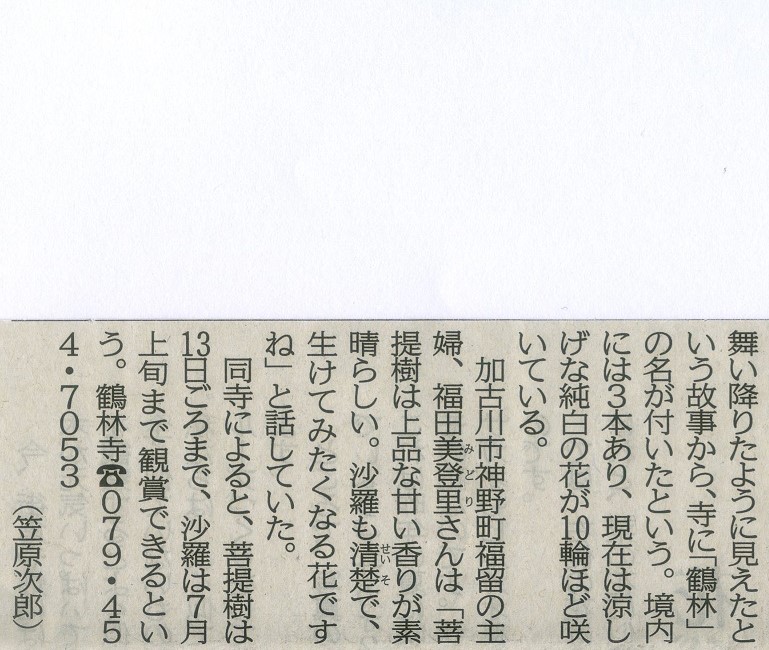 舞い降りたように見えたと
いう故事から、寺に「鶴林」
の名が付いたという。境内
には3本あり、現在は涼し
げな純白の花が10輪ほど咲
いている。
加古川市神野町福留の主
婦、福田美登里さんは「菩
提樹は上品な甘い香りが素
晴らしい。沙羅も清楚で、
生けてみたくなる花です
ね」と話していた。
同寺によると、菩提樹は
13日ごろまで、沙羅は7月
上旬まで観賞できるとい
う。鶴林寺☎079・45
4・7053
(笠原次郎)